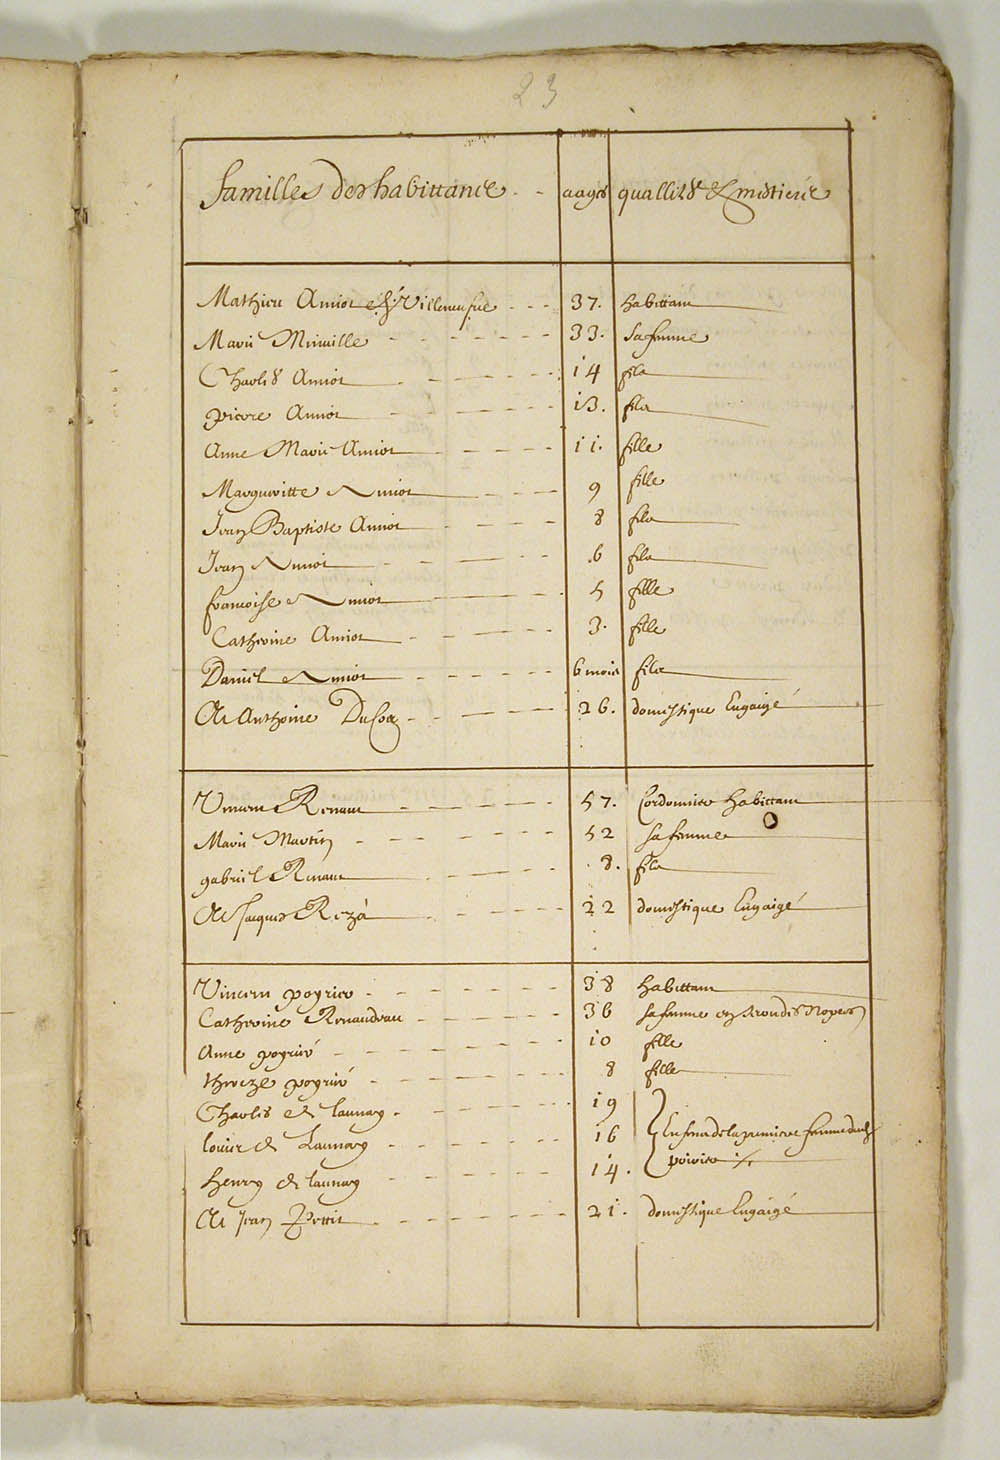 23
familles des habittants - - aages quallités & mestiers
Mathieu Amiot Villeneufue - - - 37. habittant
Marie Miuille - - - - - - 33. Sa femme
Charles Amiot - - - - - 14 fils
pierre Amiot - - - - - 13. fils
Anne Marie Amiot - - - - 11. fille
Margueritte Amiot - - - 9 fille
Jean Baptiste Amiot - - - - 8 fils
Jean Amiot - - - - - 6 fils
francoise Amiot - - - - 5 fille
Catherine Amiot - - - - - 3. fille
Daniel Amiot - - - - - 6 mois fils
Et Anthoine - - - - - 26. domestique Engaigé
Vincent Renaut - - - - - 57. Cordonnier habittant
Marie Martin - - - - - - 52 sa femme
gabriel Renaut - - - - 8. fils
Et Jacques Rezà - - - - 22 domestique Engaigé
Vincent poyrier - - - - - - 38 habittant
Catherine Renaudeau - - - - - 36 sa femme en secondes Nopces
Anne poyrié - - - - - - - 10 fille
thereze poyrié - - - - - - 8 fille
Charles de launay - - - - - 19
louis de Launay - - - - - 16 Enfans de la premiere femme dud.
henry de launay - - - - - 14. poirier ·/.
Et Jean Pettit - - - - - - 21. domestique Engaigé